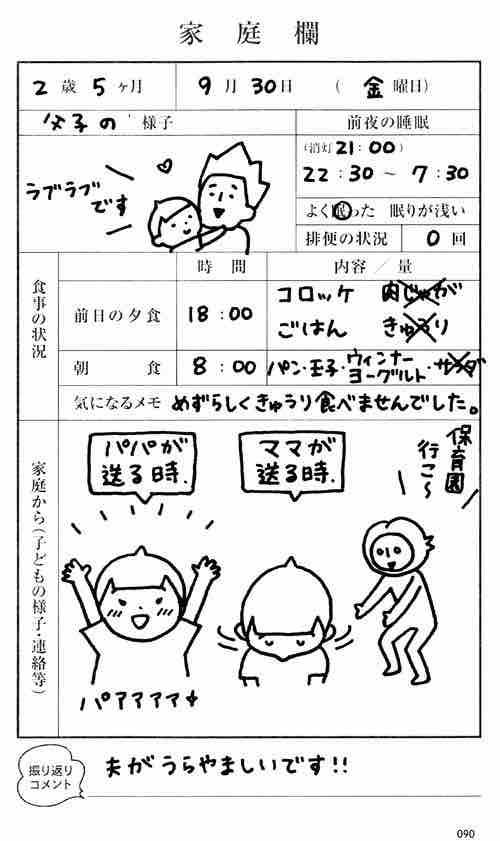 家庭欄
2歳5ヶ月 9月30日 (金曜日)
父子の 様子
前夜の睡眠
ラブラブです
(消灯21:00)
22:30～7:30
よく眠った 眠りが浅い
排便の状況 0回
食事の状況
時間 内容／量
前日の夕食 18:00
コロッケ 肉じゃが
ごはん きゅうり
朝食 8:00
パン・玉子・ウィンナー
ヨーグルト・サラダ
気になるメモ めずらしくきゅうり食べませんでした。
家庭から(子どもの様子・連絡等)
パパが
送る時.
ママが
送る時.
保育園
行こ～
パアアアア
振り返り
コメント
夫がうらやましいです!!
090